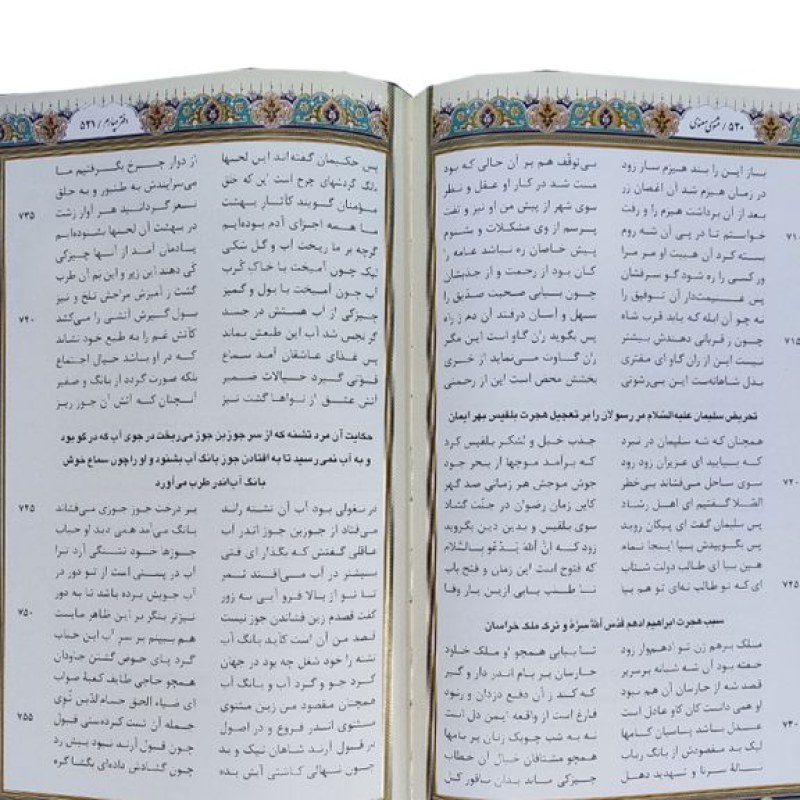 ۵۲۰ / مثنوی معنوی
باز این را بند هیزم سار زود بی‌توقف هم بر آن حالی که بود
در زمان هیزم شد آن اغصان زر مست شد در کار او عقل و نظر
بعد از آن برداشت هیزم را و رفت سوی شهر از پیش من او تیز و تفت
خواستم تا در پی آن شه روم پرسم از وی مشکلات و بشنوم
۷۱۰
بسته کرد آن هیبت او مر مرا پیش خاصان ره نباشد عامه را
ور کسی را ره شود گو سرفشان کان بود از رحمت و از جذبشان
پس غنیمت‌دار آن توفیق را چون بیابی صحبت صدیق را
نه چو آن ابله که یابد قرب شاه سهل و آسان درفتد آن دم ز راه
چون ز قربانی دهندش بیشتر پس بگوید ران گاو است این مگر
۷۱۵
نیست این از ران گاو ای مفتری ران گاوت می‌نماید از خری
بذل شاهانه‌ست این بی‌رشوتی بخشش محض است این از رحمتی
تحریض سلیمان علیه‌السّلام مر رسولان را بر تعجیل هجرت بلقیس بهر ایمان
همچنان که شه سلیمان در نبرد جذب خیل و لشکر بلقیس کرد
که بیایید ای عزیزان زود زود که برآمد موجها از بحر جود
سوی ساحل می‌فشاند بی‌خطر جوش موجش هر زمانی صد گهر
۷۲۰
الصّلا گفتیم ای اهل رشاد کاین زمان رضوان در جنّت گشاد
پس سلیمان گفت ای پیکان روید سوی بلقیس و بدین دین بگروید
پس بگوییدش بیا اینجا تمام زود که انَّ اللهَ یَدْعُو بِالسَّلام
هین بیا ای طالب دولت شتاب که فتوح است این زمان و فتح باب
ای که تو طالب نه‌ای تو هم بیا تا طلب یابی از این یار وفا
۷۲۵
سبب هجرت ابراهیم ادهم قدّس الله سرّه و ترک ملک خراسان
ملک برهم زن تو ادهم‌وار زود تا بیابی همچو او ملک خلود
خفته بود آن شه شبانه بر سریر حارسان بر بام اندر دار و گیر
قصد شه از حارسان آن هم نبود که کند ز آن دفع دزدان و رنود
او همی دانست کان کاو عادل است فارغ است از واقعه ایمن دل است
عدل باشد پاسبان کامها نه به شب چوبک زنان بر بامها
۷۳۰
لیک بد مقصودش از بانگ رباب همچو مشتاقان خیال آن خطاب
نالهٔ سرنا و تهدید دهل چیزکی ماند بدان ناقور کل
دفتر چهارم / ۵۲۱
پس حکیمان گفته‌اند این لحنها از دوار چرخ بگرفتیم ما
بانگ گردشهای چرخ است این که خلق می‌سرایندش به طنبور و به حلق
مؤمنان گویند کآثار بهشت نغز گردانید هر آواز زشت
۷۳۵
ما همه اجزای آدم بوده‌ایم در بهشت آن لحنها بشنوده‌ایم
گرچه بر ما ریخت آب و گل شکی یادمان آمد از آنها چیزکی
لیک چون آمیخت با خاک کُرَب کی دهند این زیر و این بم آن طرب
آب چون آمیخت با بول و کمیز گشت ز آمیزش مزاجش تلخ و تیز
چیزکی از آب هستش در جسد بول گیرش آتشی را می‌کشد
۷۴۰
گر نجس شد آب این طبعش بماند کآتش غم را به طبع خود نشاند
پس غذای عاشقان آمد سماع که در او باشد خیال اجتماع
قوّتی گیرد خیالات ضمیر بلکه صورت گردد از بانگ و صفیر
آتش عشق از نواها گشت تیز آنچنان که آتش آن جوز ریز
حکایت آن مرد تشنه که از سر جوزبن جوز می‌ریخت در جوی آب که در گو بود
و به آب نمی‌رسید تا به افتادن جوز بانگ آب بشنود و او را چون سماع خوش
بانگ آب اندر طرب می‌آورد
در نغولی بود آب آن تشنه راند بر درخت جوز جوزی می‌فشاند
۷۴۵
می‌فتاد از جوزبن جوز اندر آب بانگ می‌آمد همی دید او حباب
عاقلی گفتش که بگذار ای فتی جوزها خود تشنگی آرد ترا
بیشتر در آب می‌افتد ثمر آب در پستی است از تو دور در
تا تو از بالا فرو آیی به زور آب جویش برده باشد تا به دور
گفت قصدم زین فشاندن جوز نیست تیزتر بنگر بر این ظاهر مایست
۷۵۰
قصد من آن است کآید بانگ آب هم ببینم بر سر آب این حباب
تشنه را خود شغل چه بود در جهان گرد پای حوض گشتن جاودان
گرد جو و گرد آب و بانگ آب همچو حاجی طایف کعبهٔ صواب
همچنان مقصود من زین مثنوی ای ضیاء الحق حسام‌الدّین توی
مثنوی اندر فروع و در اصول جمله آن تست کرده‌ستی قبول
۷۵۵
در قبول آرند شاهان نیک و بد چون قبول آرند نبود بیش رد
چون نهالی کاشتی آبش بده چون گشادش داده‌ای بگشا گره